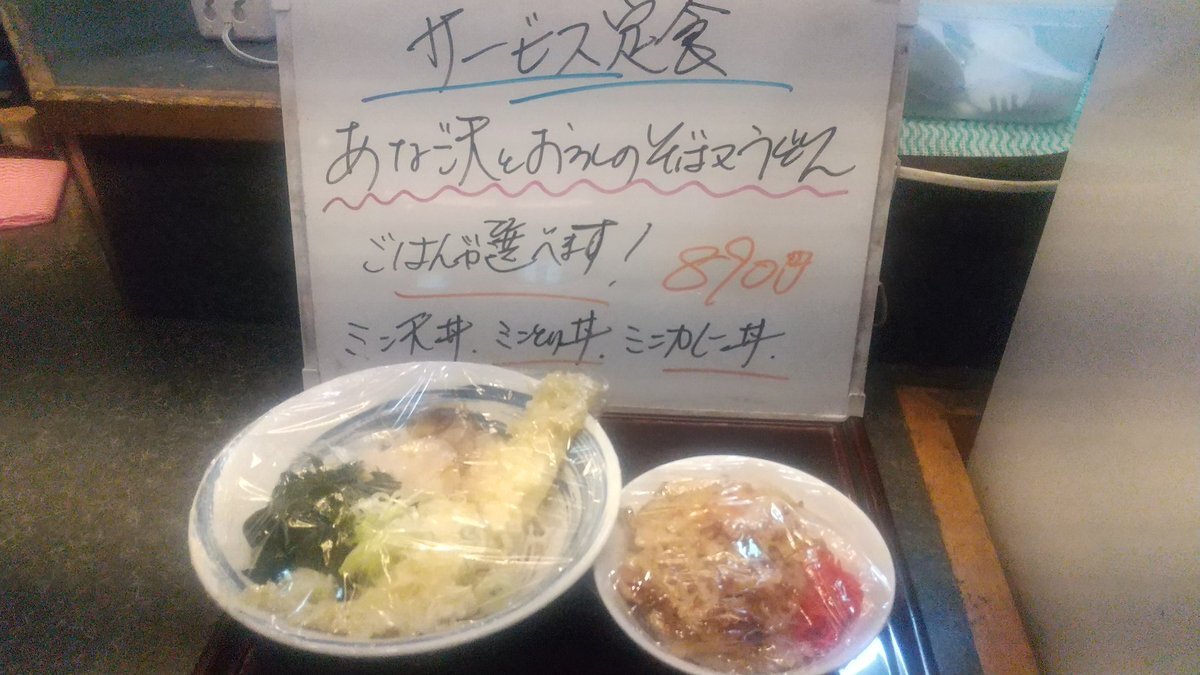 サービス定食
あなご天とおろしのそば又うどん
ごはんが選べます!
890円
ミニ天丼、ミニとり丼、ミニカレー丼、